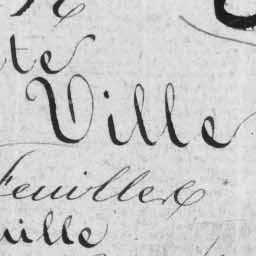 te
Ville
Feuillet
uille